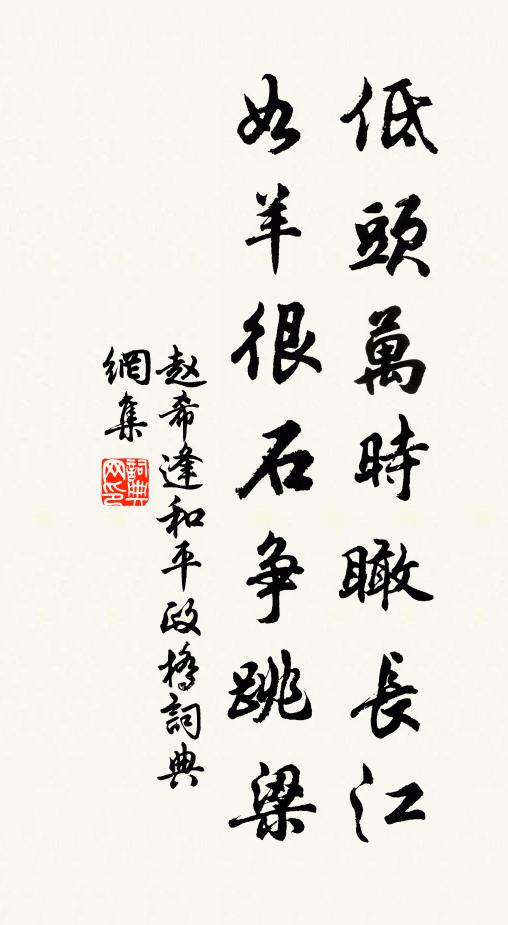 低頭萬時瞰長江
如羊很石争跳梁
赵希逢和平政橋詞典
網集
詞典
网印